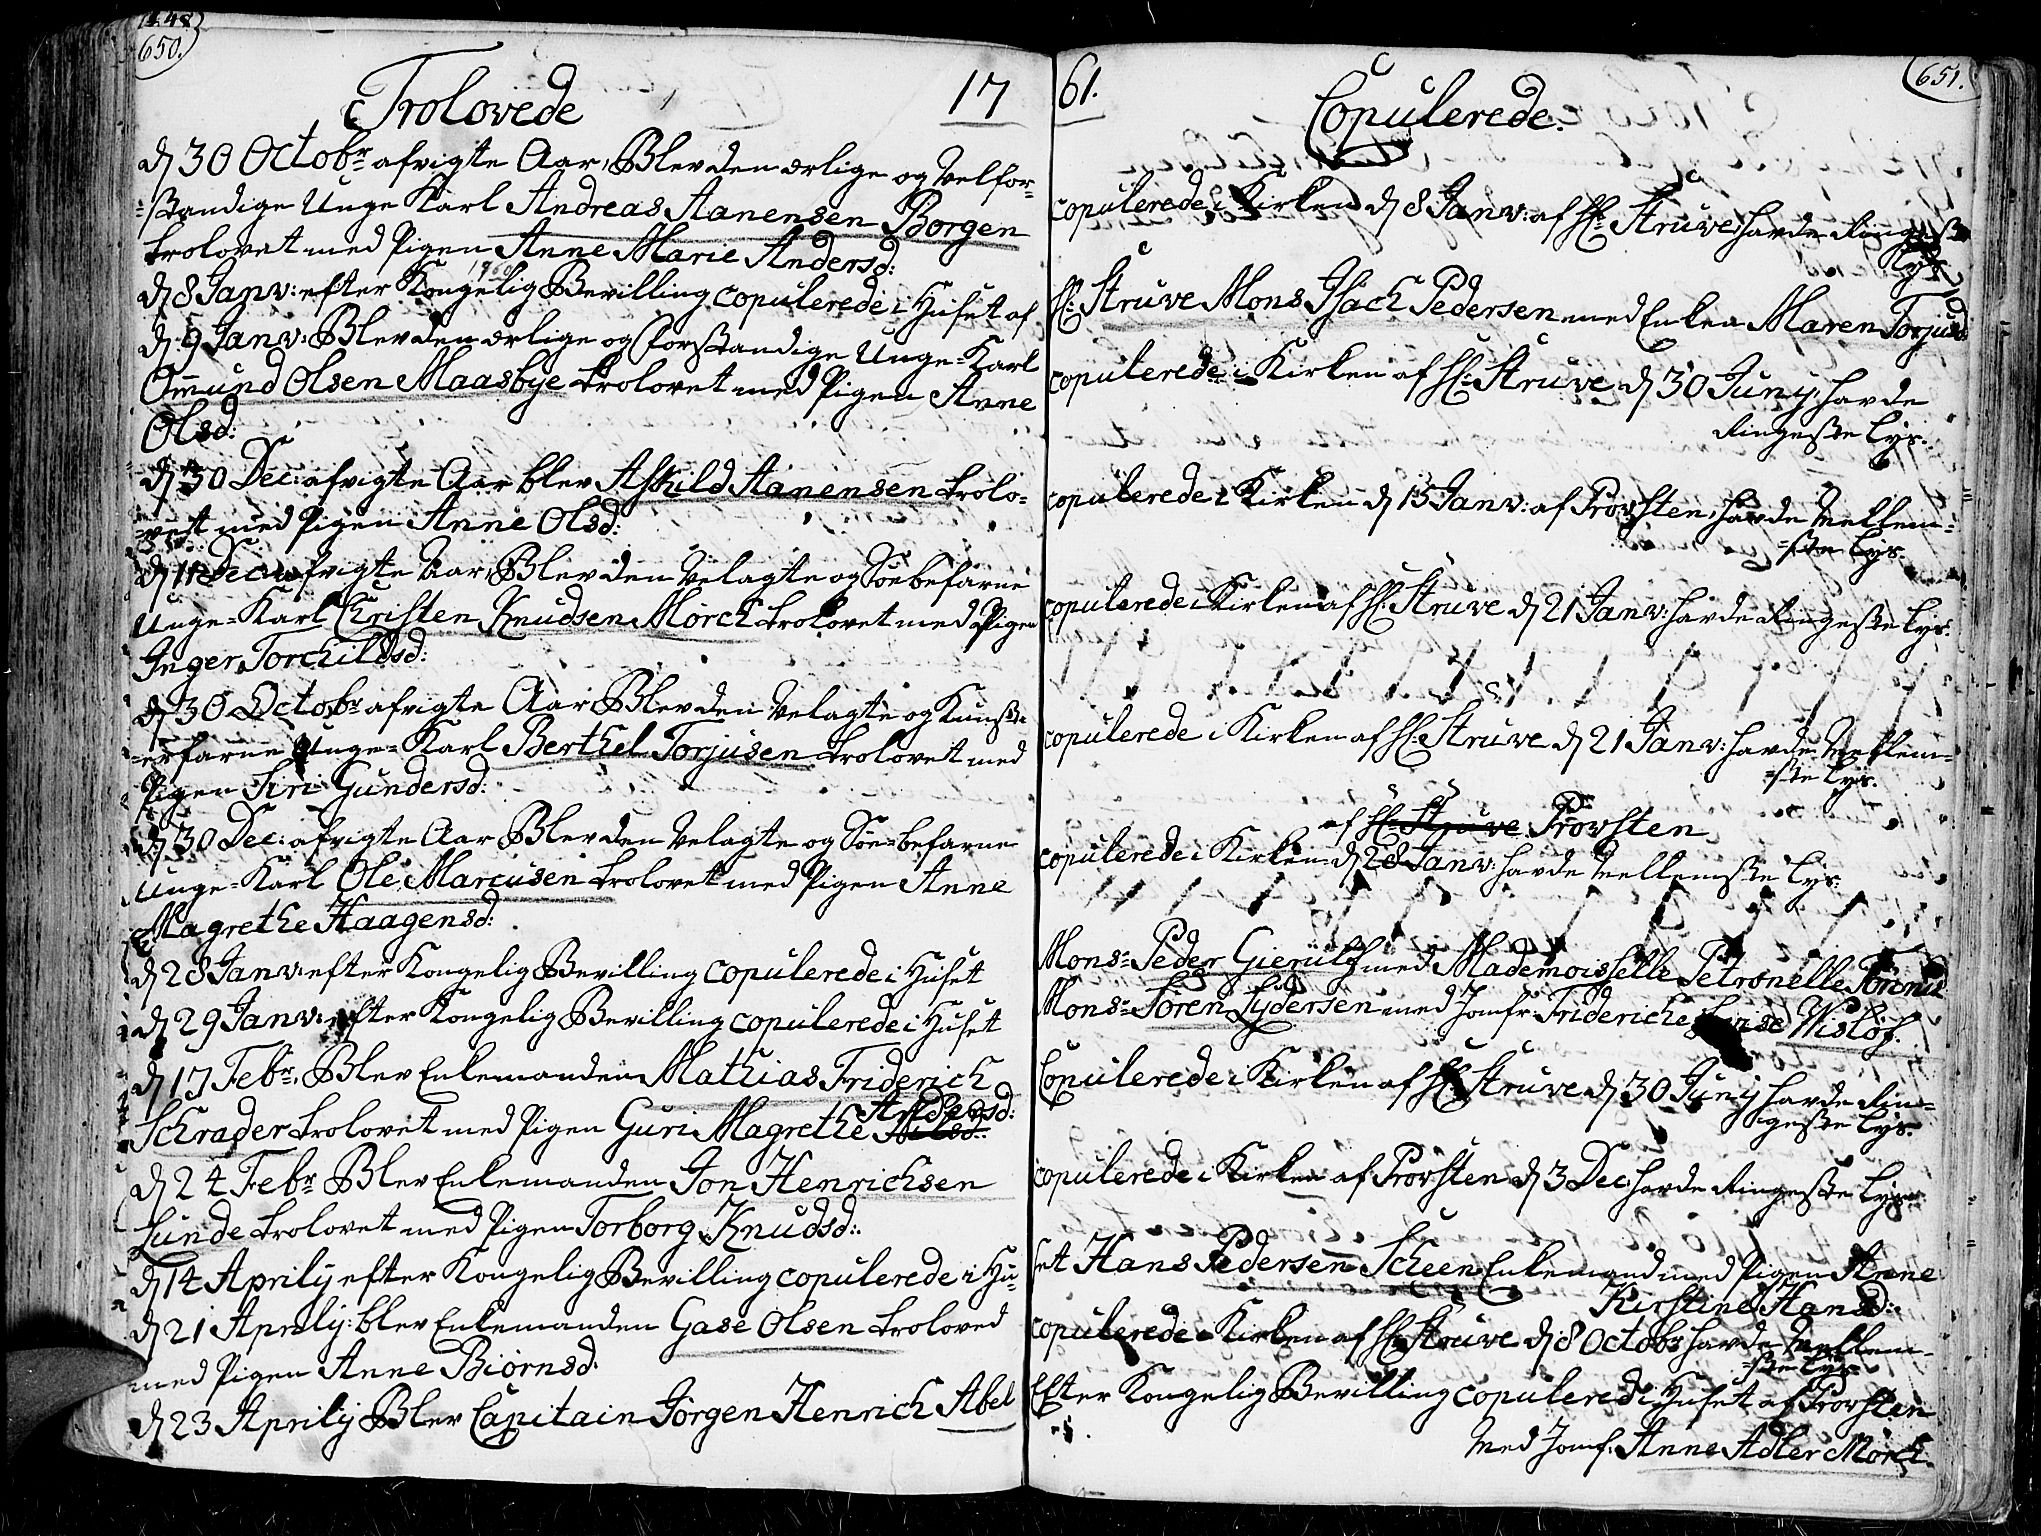 650.
Trolovede 17
d 30 Octobr afvigte Aar, Blev den ærlige og Velfor-
-standige Unge Karl Andreas Aanensen Borgen
trolovat med Pigen Anne Marie Andersd:
d 8 Janv: efter Kongelig Bevilling copulerede i Huset af
d 9 Janv: Blev den ærlige og forstandige Unge-Karl
Omund Olsen Maasbye trolovet med Pigen Anne
Olsd:
d 30 Dec: afvigte Aar blev Askild Aanensen trolo-
-vet med Pigen Anne Olsd:
d 11 Dec: afvigte Aar, Blev den Velagte og Søebefarne
Unge-Karl Christen Knudsen Mörch trolovet med Pigen
Inger Torchildsd:
d 30 Octobr afvigte Aar Blev den Velagte og Kunst-
-erfarne Unge-Karl Berthel Torjusen trolovet med
Pigen Siri Gundersd:
d 30 Dec: afvigte Aar Blev den Velagte og Søe-befarne
Unge-Karl Ole Marcusen trolovet med Pigen Anne
Magrethe Haagensd:
d 28 Janv: efter Kongelig Bevilling copulerede i Huset
d 29 Janv: efter Kongelig Bevilling copulerede i Huset
d 17 Febr. Blev Enkemanden Mathias Friderich
Andersd:
Schrader trolovet med Pigen Guri Magrethe
d 24 Febr Blev Enkemanden Jon Henrichsen
Lunde trolovet med Pigen Torborg Knudsd:
d 14 Aprily efter Kongelig Bevilling copulerede i Hu-
d 21 Aprily: blev Enkemanden Gase Olsen troloved
med Pigen Anne Biörnsd:
d 23 Aprily Blev Capitain Jörgen Henrich Abel
61. 651.
Copulerede.
copulerede i Kirken d 8 Janv: af Hr: Struve, havde Ringeste
Lys
Hr: Struve Mons Isach Pedersen med Enken Maren Torjusd
copulerede i Kirken af Hr: Struve d 30 Juny, havde
Ringeste Lys.
copulerede i Kirken d 15 Janv: af Provsten, havde Mellem-
-ste Lys.
copulerede i Kirken af Hr: Struve d 21 Janv: havde Ringeste Lys.
copulerede i Kirken af Hr: Struve d 21 Janv: havde Mellem-
-ste Lys.
af Hr: Struve Provsten
copulerede i Kirken d 28 Janv: havde Mellemste Lys.
Mons: Peder Gierulf med Mademoisselle Petronelle
Mons: Sören Lydersen med Jomfr: Frideriche Wislöf.
Copulerede i Kirken af Hr Struve d 30 Juny havde Rin-
geste Lys.
copulerede i Kirken af Provsten d 3 Dec: havde Ringeste Lys.
set Hans Pedersen Scheen Enkemand med Pigen Anne
Kirstine Hansd:
copulerede i Kirken af Hr Struve d 8 Octobr havde Mellem-
-ste Lys.
Efter Kongelig Bevilling copulered i Huset af Provsten
med Jomf: Anne Adler Mörch.